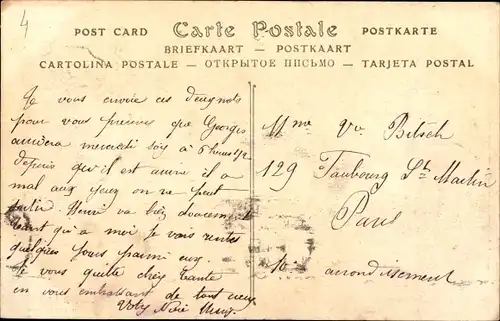 4
POST CARD Carte Postale POSTKARTE
BRIEFKAART — POSTKAART
CARTOLINA POSTALE — ОТКРЫТОЕ ПИСЬМО — TARJETA POSTAL
Je vous envoie ces deux mots
pour vous prévenir que Georges
arrivera mercredi soir à 6 heures 1/2
depuis qu'il est arrivé il a
mal aux yeux on ne peut
sortir Henri va bien doucement
tant qu'a moi je vais rester
quelques jours parmi eux.
Je vous quitte chère tante
en vous embrassant de tout cœur
Votre Nièce
Mme Vve Bitsch
129 Faubourg St Martin
Paris
10e arrondissement